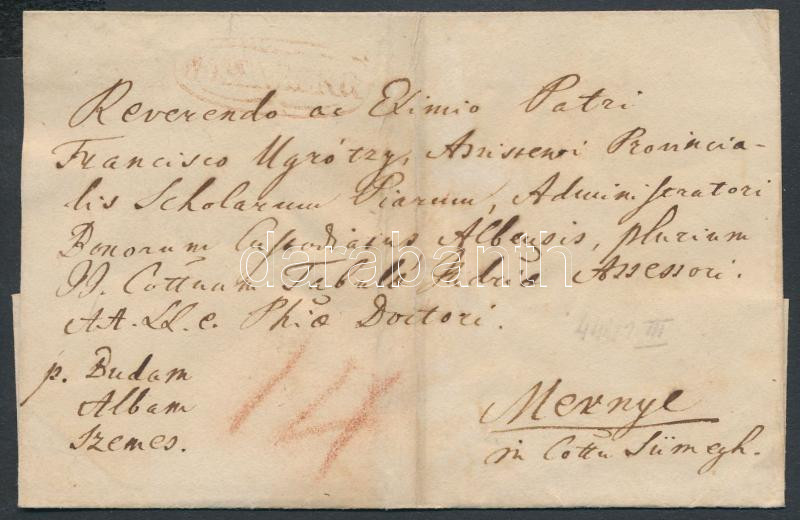 Reverendo ac Eximio Patri
Francisco Ugrótzy, Assistenti Provincia-
lis Scholarum Piarum, Administratori
Bonorum Custodiatus Albensis, plurium
JJ. Cottuum Tabulæ Judriæ Assessori.
AA. LL. e. Phiæ Doctori.
p. Budam
Albam
Szemes.
14
Mernye
in Cottu Sümegh.
darabanth